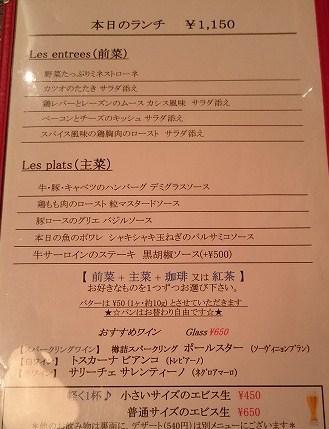 本日のランチ ￥1,150
Les entrees(前菜)
野菜たっぷりミネストローネ
カツオのたたき サラダ添え
鶏レバーとレーズンのムース カシス風味 サラダ添え
ベーコンとチーズのキッシュ サラダ添え
スパイス風味の鶏胸肉のロースト サラダ添え
Les plats(主菜)
牛・豚・キャベツのハンバーグ デミグラスソース
鶏もも肉のロースト 粒マスタードソース
豚ロースのグリエ バジルソース
本日の魚のポワレ シャキシャキ玉ねぎのバルサミコソース
牛サーロインのステーキ 黒胡椒ソース(+¥500)
【 前菜 + 主菜 + 珈琲 又は 紅茶 】
お好きなものを1つずつお選び下さい。
バターは ¥50 (1ヶ・約10g) とさせていただきます
★☆パンはお替わり自由です☆★
おすすめワイン Glass ¥650
【スパークリングワイン】 樽詰スパークリング ポールスター (ソーヴィニョンブラン)
【白ワイン】 トスカーナ ビアンコ (トレビアーノ)
サリーチェ サレンティーノ (ネグロアマーロ)
軽く1杯♪ 小さいサイズのエビス生 ¥450
普通サイズのエビス生 ¥650
＊他のお飲み物は裏面に、デザート(540円)は別メニューにございます＊